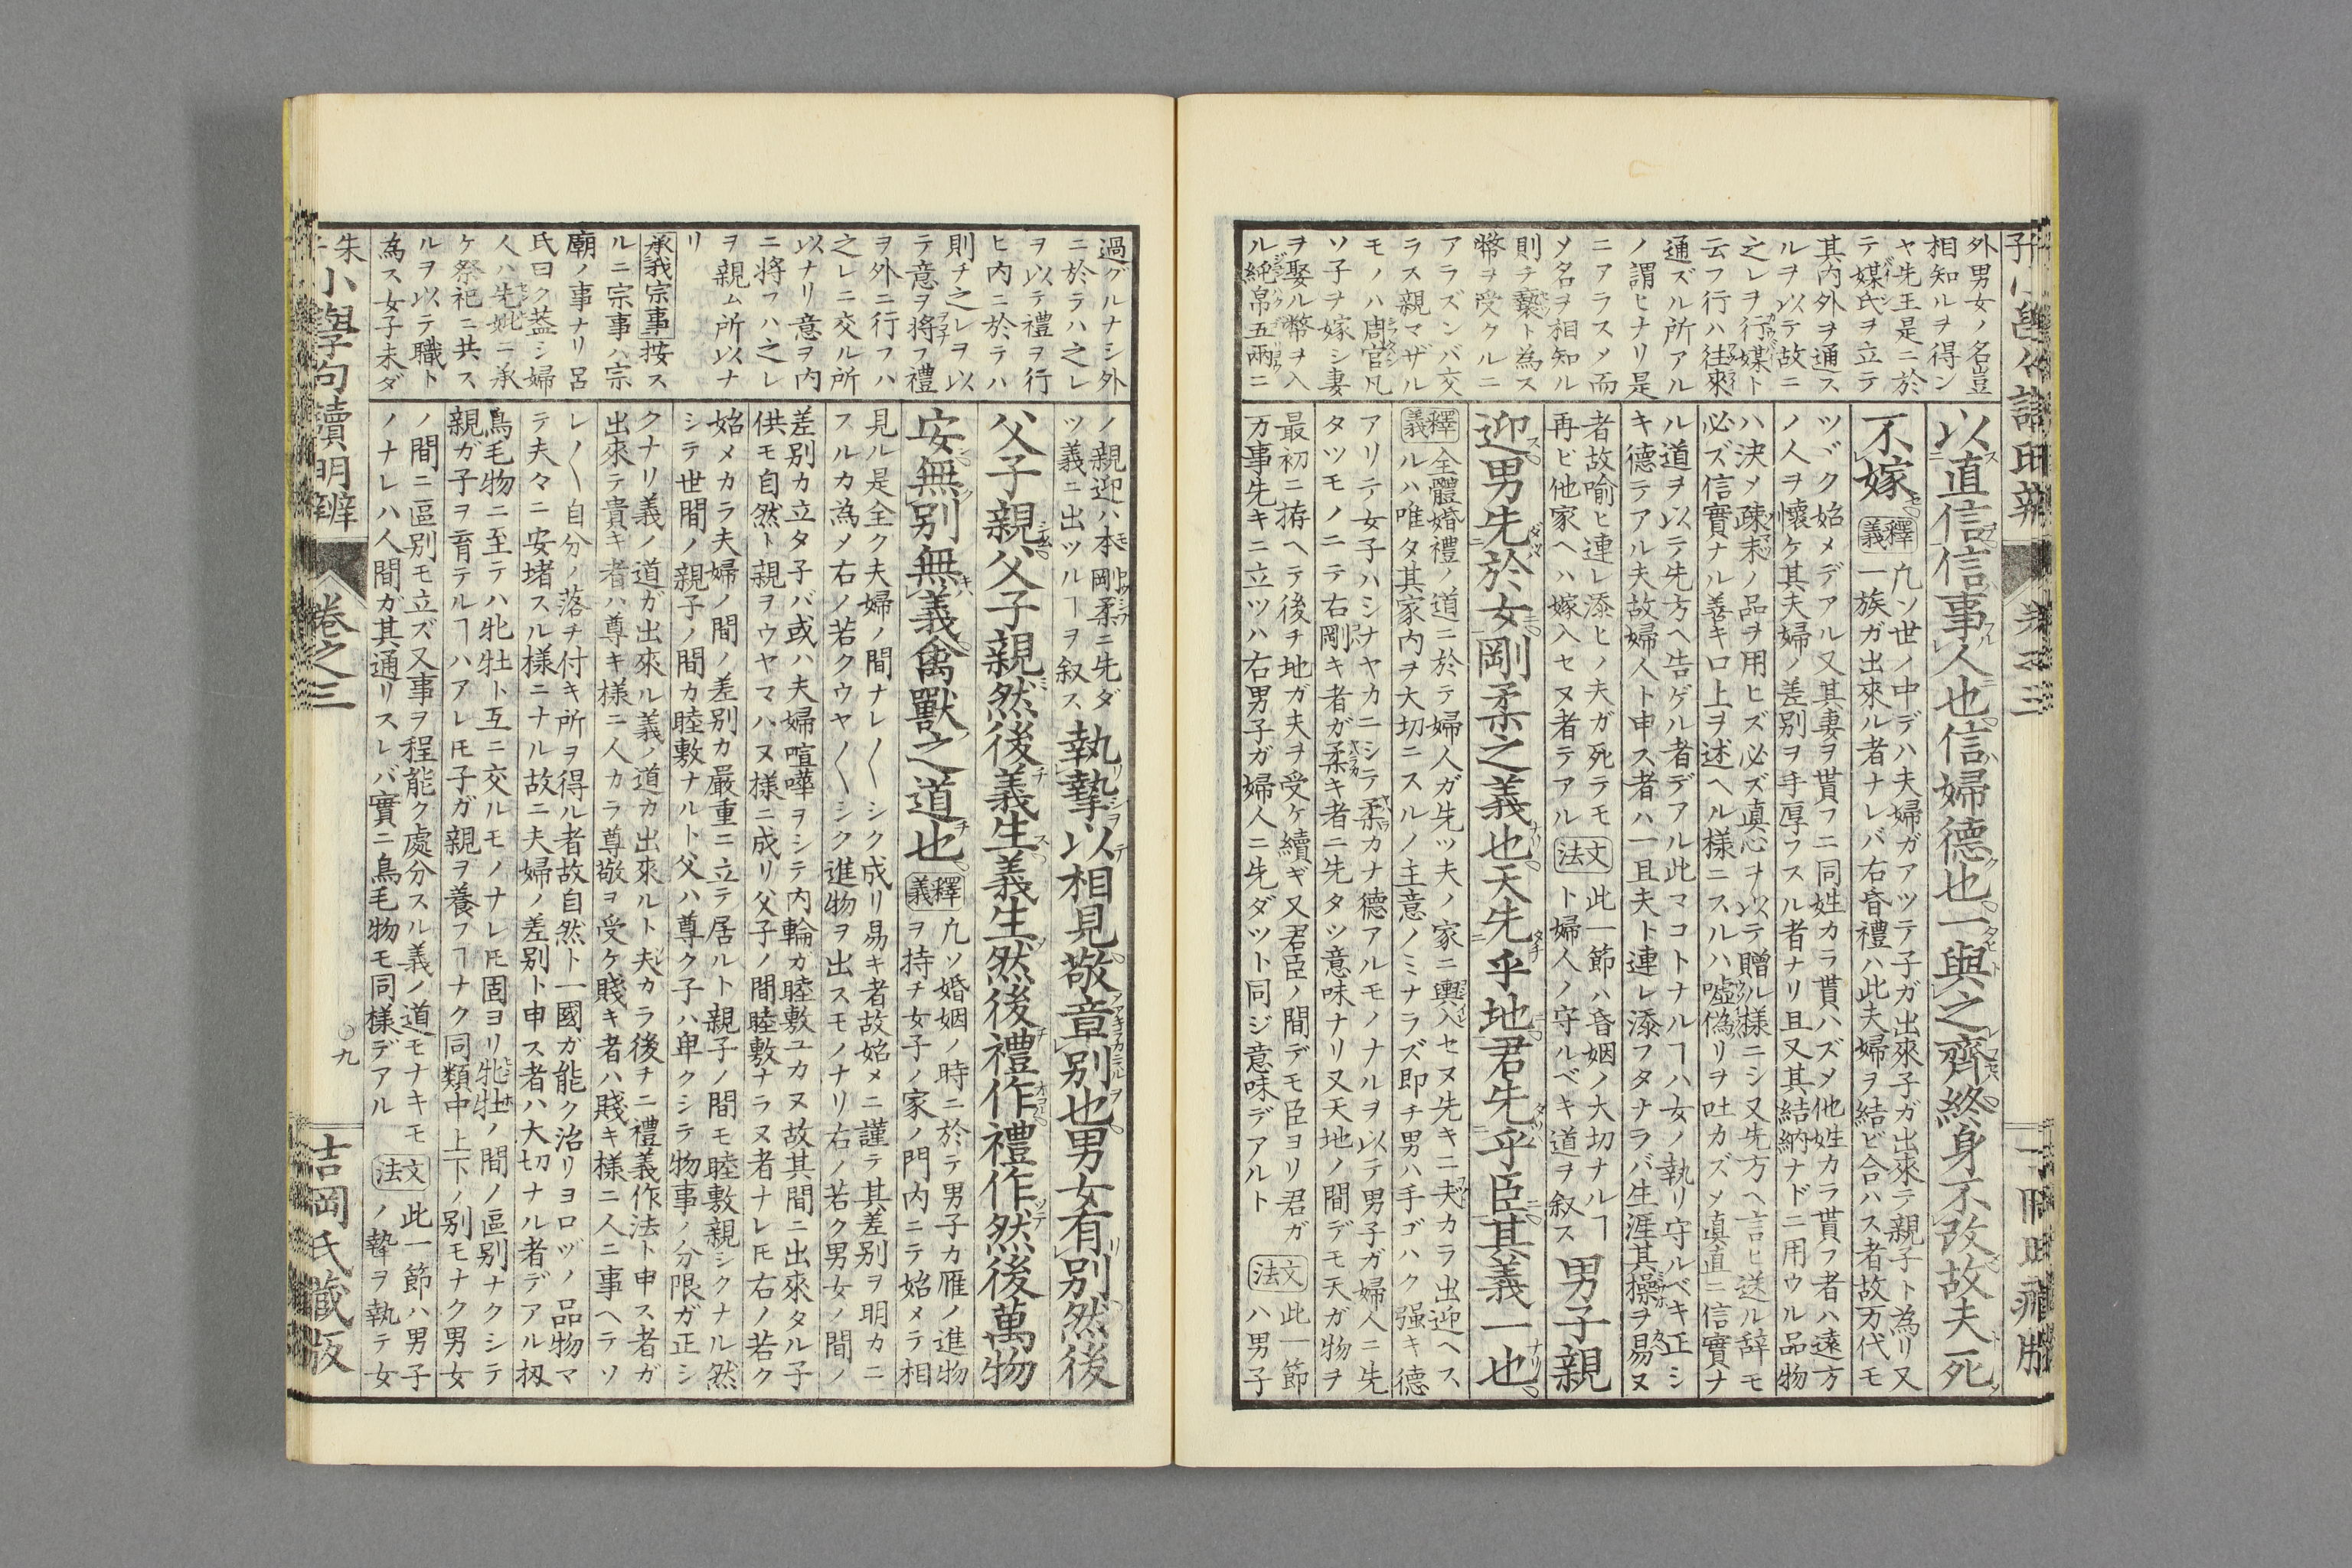 外男女ノ名豈
相知ルヲ得ン
ヤ先王是ニ於
テ媒氏ヲ立テ
其内外ヲ通ス
ルヲ以テ故ニ
之レヲ行媒ト
云フ行ハ往來
通ズル所アル
ノ謂ヒナリ是
ニアラスメ而
ソ名ヲ相知ル
則チ褻ト為ス
幣ヲ受クルニ
アラズンバ交
ラス親マザル
モノハ周官凡
ソ子ヲ嫁シ妻
ヲ娶ル幣ヲ入
ル純帛五兩ニ
以直信信事人也信婦德也一與之齊終身不改故夫死
不嫁
釋義
凢ソ世ノ中デハ夫婦ガアツテ子ガ出來子ガ出來テ親子ト為リ又
一族ガ出來ル者ナレバ右昏禮ハ此夫婦ヲ結ビ合ハス者故万代モ
ツヾク始メデアル又其妻ヲ貰フニ同姓カラ貰ハズメ他姓カラ貰フ者ハ遠方
ノ人ヲ懷ケ其夫婦ノ差別ヲ手厚フスル者ナリ且又其結納ナドニ用ウル品物
ハ決メ疎末ノ品ヲ用ヒズ必ズ眞心ヲ以テ贈ル樣ニシ又先方ヘ言ヒ送ル辞モ
必ズ信實ナル善キ口上ヲ述ヘル樣ニスルハ噓偽リヲ吐カズメ眞直ニ信實ナ
ル道ヲ以テ先方ヘ告ゲル者デアル此マコトナルヿハ女ノ執リ守ルベキ正シ
キ德テアル夫故婦人ト申ス者ハ一且夫ト連レ添フタナラバ生涯其操ヲ易ヌ
者故喻ヒ連レ添ヒノ夫ガ死ラモ
再ビ他家ヘハ嫁入セヌ者テアル
文法
此一節ハ昏姻ノ大切ナルヿ
ト婦人ノ守ルベキ道ヲ叙ス
男子親
迎男先於女剛柔之義也天先乎地君先乎臣其義一也
釋義
全體婚禮ノ道ニ於テ婦人ガ先ツ夫ノ家ニ輿入セヌ先キニ夫カラ出迎ヘス
ルハ唯タ其家内ヲ大切ニスルノ主意ノミナラズ即チ男ハ手ゴハク强キ德
アリテ女子ハシナヤカニシテ柔カナ德アルモノナルヲ以テ男子ガ婦人ニ先
タツモノニテ右剛キ者ガ柔キ者ニ先タツ意味ナリ又天地ノ間デモ天ガ物ヲ
最初ニ拵ヘテ後チ地ガ夫ヲ受ケ續ギ又君臣ノ間デモ臣ヨリ君ガ
万事先キニ立ツハ右男子ガ婦人ニ先ダツト同ジ意味デアルト
文法
此一節
ハ男子
過グルナシ外
ニ於ラハ之レ
ヲ以テ禮ヲ行
ヒ内ニ於テハ
則チ之レヲ以
テ意ヲ将フ禮
ヲ外ニ行フハ
之レニ交ル所
以ナリ意ヲ内
ニ将フハ之レ
ヲ親ム所以ナ
リ
承我宗事按ス
ルニ宗事ハ宗
廟ノ事ナリ呂
氏曰ク蓋シ婦
人ハ先妣ニ承
ケ祭祀ニ共ス
ルヲ以テ職ト
為ス女子未ダ
ノ親迎ハ本剛柔ニ先ダ
ツ義ニ出ツルヿヲ叙ス
執摯以相見敬章別也男女有別然後
父子親父子親然後義生義生然後禮作禮作然後萬物
安無別無義禽獸之道也
釋義
凢ソ婚姻ノ時ニ於テ男子カ雁ノ進物
ヲ持チ女子ノ家ノ門内ニテ始メテ相
見ル是全ク夫婦ノ間ナレ〱シク成リ易キ者故始メニ謹テ其差別ヲ明カニ
スルカ為メ右ノ若クウヤ〱シク進物ヲ出スモノナリ右ノ若ク男女ノ間ノ
差別カ立タ子バ或ハ夫婦喧嘩ヲシテ内輪カ睦敷ユカヌ故其間ニ出來タル子
供モ自然ト親ヲウヤマハヌ樣ニ成リ父子ノ間睦敷ナラヌ者ナレ𪜈右ノ若ク
始メカラ夫婦ノ間ノ差別カ嚴重ニ立テ居ルト親子ノ間モ睦敷親シクナル然
シテ世間ノ親子ノ間カ睦敷ナルト父ハ尊ク子ハ卑クシテ物事ノ分限ガ正シ
クナリ義ノ道ガ出來ル義ノ道カ出來ルト夫カラ後チニ禮義作法ト申ス者ガ
出來テ貴キ者ハ尊キ樣ニ人カラ尊敬ヲ受ケ賤キ者ハ賤キ樣ニ人ニ事ヘラソ
レ〱自分ノ落チ付キ所ヲ得ル者故自然ト一國ガ能ク治リヨロヅノ品物マ
テ夫々ニ安堵スル樣ニナル故ニ夫婦ノ差別ト申ス者ハ大切ナル者デアル扨
鳥毛物ニ至テハ牝牡ト互ニ交ルモノナレ𪜈固ヨリ牝牡ノ間ノ區別ナクシテ
親ガ子ヲ育テルヿハアレ𪜈子ガ親ヲ養フヿナク同類中上下ノ別モナク男女
ノ間ニ區別モ立ズ又事ヲ程能ク處分スル義ノ道モナキモ
ノナレハ人間ガ其通リスレバ實ニ鳥毛物モ同樣デアル
文法
此一節ハ男子
ノ摯ヲ執テ女
朱子小學句讀明辨
卷之三
九
吉岡氏藏版